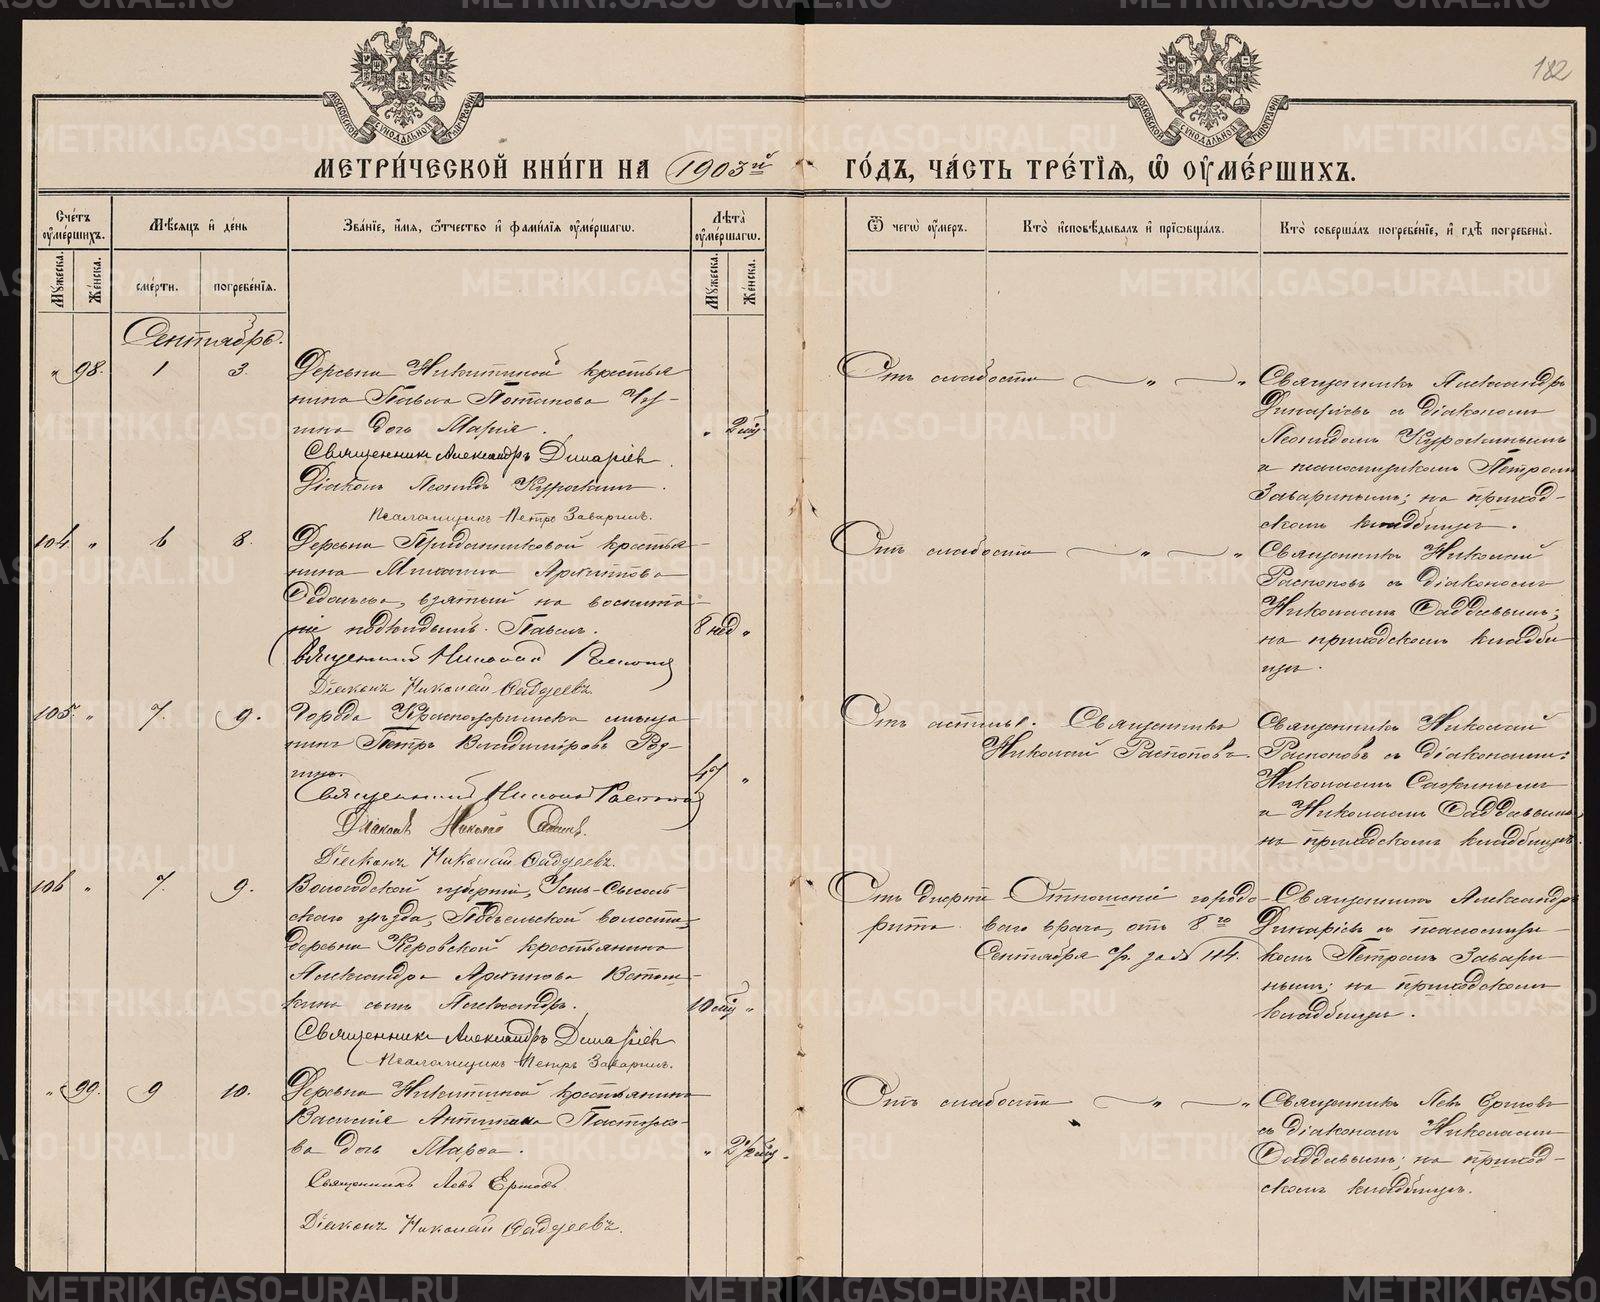 182
МОСКОВСКОЙ СѴНОДАЛЬНОЙ ТИПОГРАФІИ
МОСКОВСКОЙ СѴНОДАЛЬНОЙ ТИПОГРАФІИ
МЕТРИ́ЧЕСКОЙ КНИ́ГИ НА 1903й ГО́ДЪ, ЧА́СТЬ ТРЕ́ТІЯ, Ѡ҆ ОУ҆МЕ́РШИХЪ.
Сче́тъ оу҆ме́ршихъ.
Мꙋ́жеска.
Же́нска.
Мѣ́сяцъ и҆ де́нь
сме́рти.
погребе́нїѧ.
Зва́нїе, и҆́мѧ, ѻ҆́тчество и҆ фами́лїѧ оу҆ме́ршагѡ.
Лѣта̀ оу҆ме́ршагѡ.
Мꙋ́жеска.
Же́нска.
Ѿ чегѡ̀ оу҆́меръ.
Кто̀ и҆сповѣ́дывалъ и҆ прїѡбща́лъ.
Кто̀ соверша́лъ погребе́нїе, и҆ гдѣ̀ погребены̀.
Сентябрь.
" 98. 1 3.
Деревни Никитиной крестья
нина Павла Потапова
дочь Марія.
" 2 мѣс.
Священникъ Александръ Динаріев.
Діаконъ Леонидъ
Псаломщикъ Петръ Заваринъ.
Отъ слабости — " — "
Священникъ Александръ
Динаріевъ съ діакономъ
Леонидомъ
и псаломщикомъ Петромъ
Заваринымъ; на приход-
скомъ кладбищѣ.
104. " 6 8.
Деревни крестья-
нина Михаила Архипова
взятый на воспита-
ніе подкидышъ Павелъ.
8 нед "
Священникъ Николай Распопов
Діаконъ Николай Фаддеевъ.
Отъ слабости — " — "
Священникъ Николай
Распоповъ съ діакономъ
Николаемъ Фаддеевымъ;
на приходскомъ кладби
щѣ.
105. " 7. 9.
Города мѣща
нинъ Петръ Владиміровъ Род-
гинъ.
47 "
Священникъ Николай Распопов
Діаконъ Николай
Діаконъ Николай Фаддеевъ.
Отъ астмы. Священникъ
Николай Распоповъ.
Священникъ Николай
Распоповъ съ діаконами:
Николаемъ
и Николаемъ Фаддеевымъ
на приходскомъ кладбищѣ.
106 " 7. 9.
Вологодской губерніи, Усть-Сысоль-
скаго уѣзда, волости,
деревни Керовской крестьянина
Александра Архипова
сынъ Александръ.
10 мѣс "
Священникъ Александръ Динаріев
Псаломщикъ Петръ Заваринъ.
Отъ дизенте
рита.
Отношеніе городо-
ваго врача, отъ 8го
Сентября с/г. за № 114.
Священникъ Александръ
Динаріевъ съ псаломщи-
комъ Петромъ Завари-
нымъ; на приходскомъ
кладбищѣ.
" 99. 9 10.
Деревни Никитиной крестьянина
Василія Антипина
ва дочь
" 2½ мѣс.
Священникъ Левъ Ершовъ
Діаконъ Николай Фаддеевъ.
Отъ слабости — " — "
Священникъ Левъ Ершовъ
съ діакономъ Николаемъ
Фаддеевымъ; на приход-
скомъ кладбищѣ.
METRIKI.GASO-URAL.RU